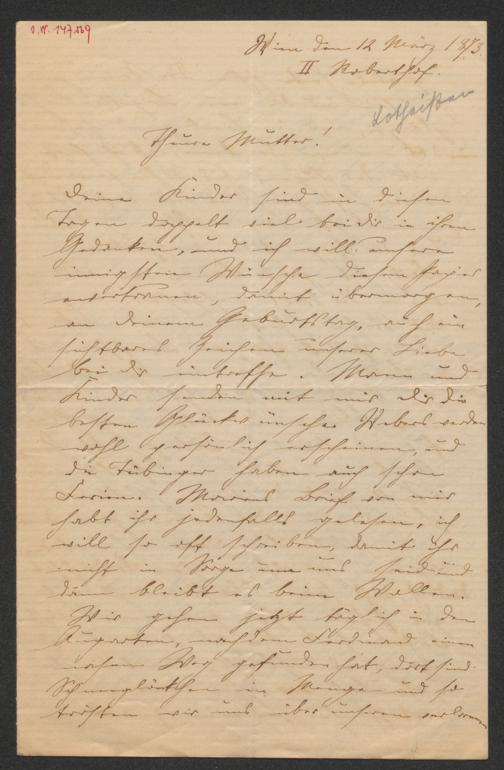 I.N. 147.169
Wien den 12 März 1873.
II Roberthof.
Lotheißen
Theure Mutter!
Deine Kinder sind in diesen
Tagen doppelt viel bei dir in ihren
Gedanken, und ich will unsere
innigsten Wünsche diesem Papier
anvertrauen, damit übermorgen,
an deinem Geburtstag, auch ein
sichtbares Zeichen unserer Liebe
bei dir eintreffe. Mann und
Kinder senden mit mir dir die
besten Glückwünsche. Webers werden
wohl persönlich erscheinen, und
die Tübinger haben auch schon
Ferien. Mariens Brief von mir
habt ihr jedenfalls gelesen, ich
will so oft schreiben, damit ihr
nicht in Sorge um uns seid und
dann bleibt es beim Wollen.
Wir gehen jetzt täglich in den
Augarten, nachdem Ferdinand einen
nahen Weg gefunden hat, dort sind
Schneeglöckchen in Menge und so
trösten wir uns über unseren verlorenen